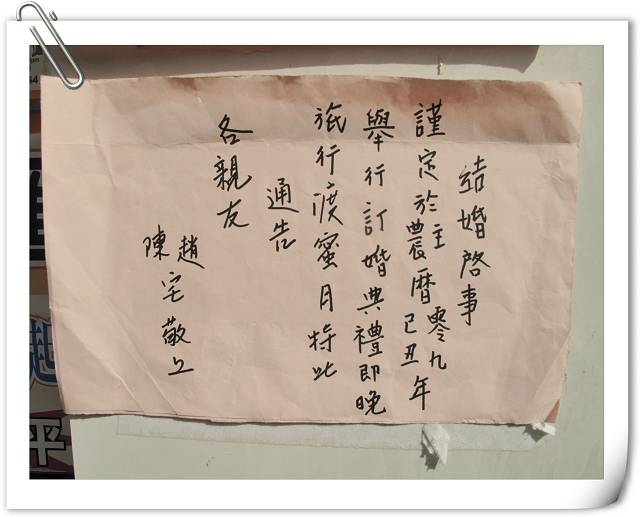 結婚啓事
謹定於主農暦零九己丑年
舉行訂婚典禮即晚
旅行渡蜜月特此
通告
各親友
趙陳宅敬上